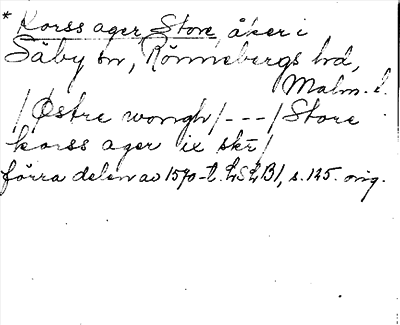 * Korss ager, Store, åker i
Säby sn, Rönnebergs hd,
Malm. l.
/Østre wongh/---/Store
korss ager ix skr/
förra delen av 1590-t. LSLB1, s. 125. orig.